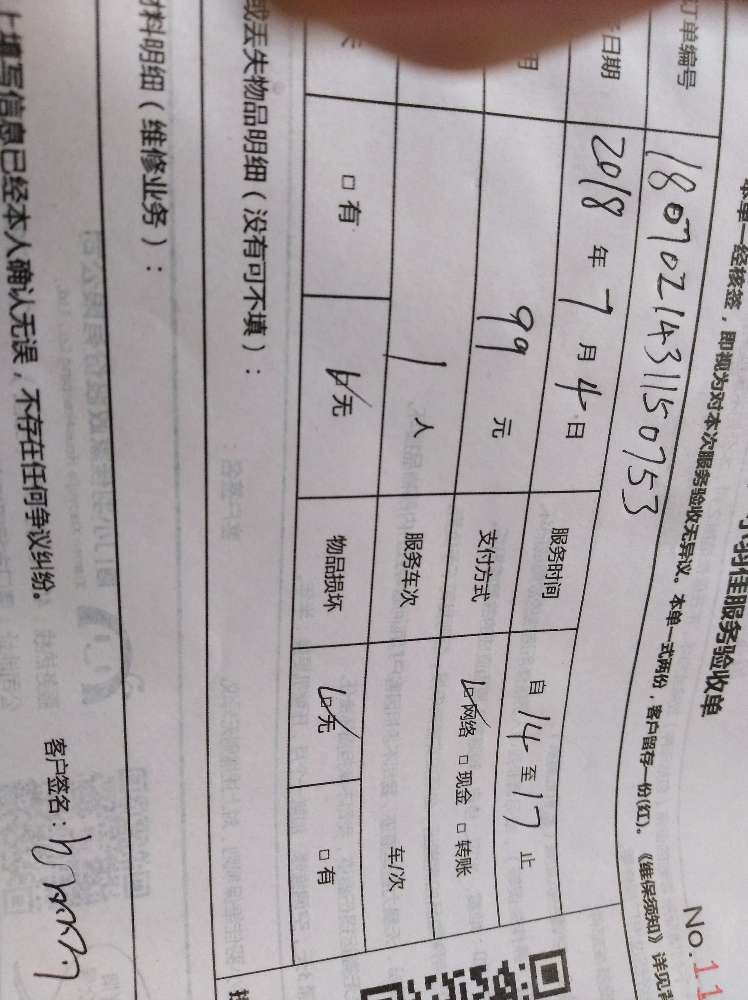 羽佳服务验收单
No.11
本单一经核签，即视为对本次服务验收无异议。本单一式两份，客户留存一份(红)。《维保须知》详见
订单编号 1807021431150753
日期 2018 年 7 月 4 日 服务时间 自 14 至 17 止
用 99 元 支付方式 ☑网络 □现金 □转账
1 人 服务车次 车/次
□有 ☑无 物品损坏 ☑无 □有
或丢失物品明细（没有可不填）：
材料明细（维修业务）：
上填写信息已经本人确认无误，不存在任何争议纠纷。
客户签名：